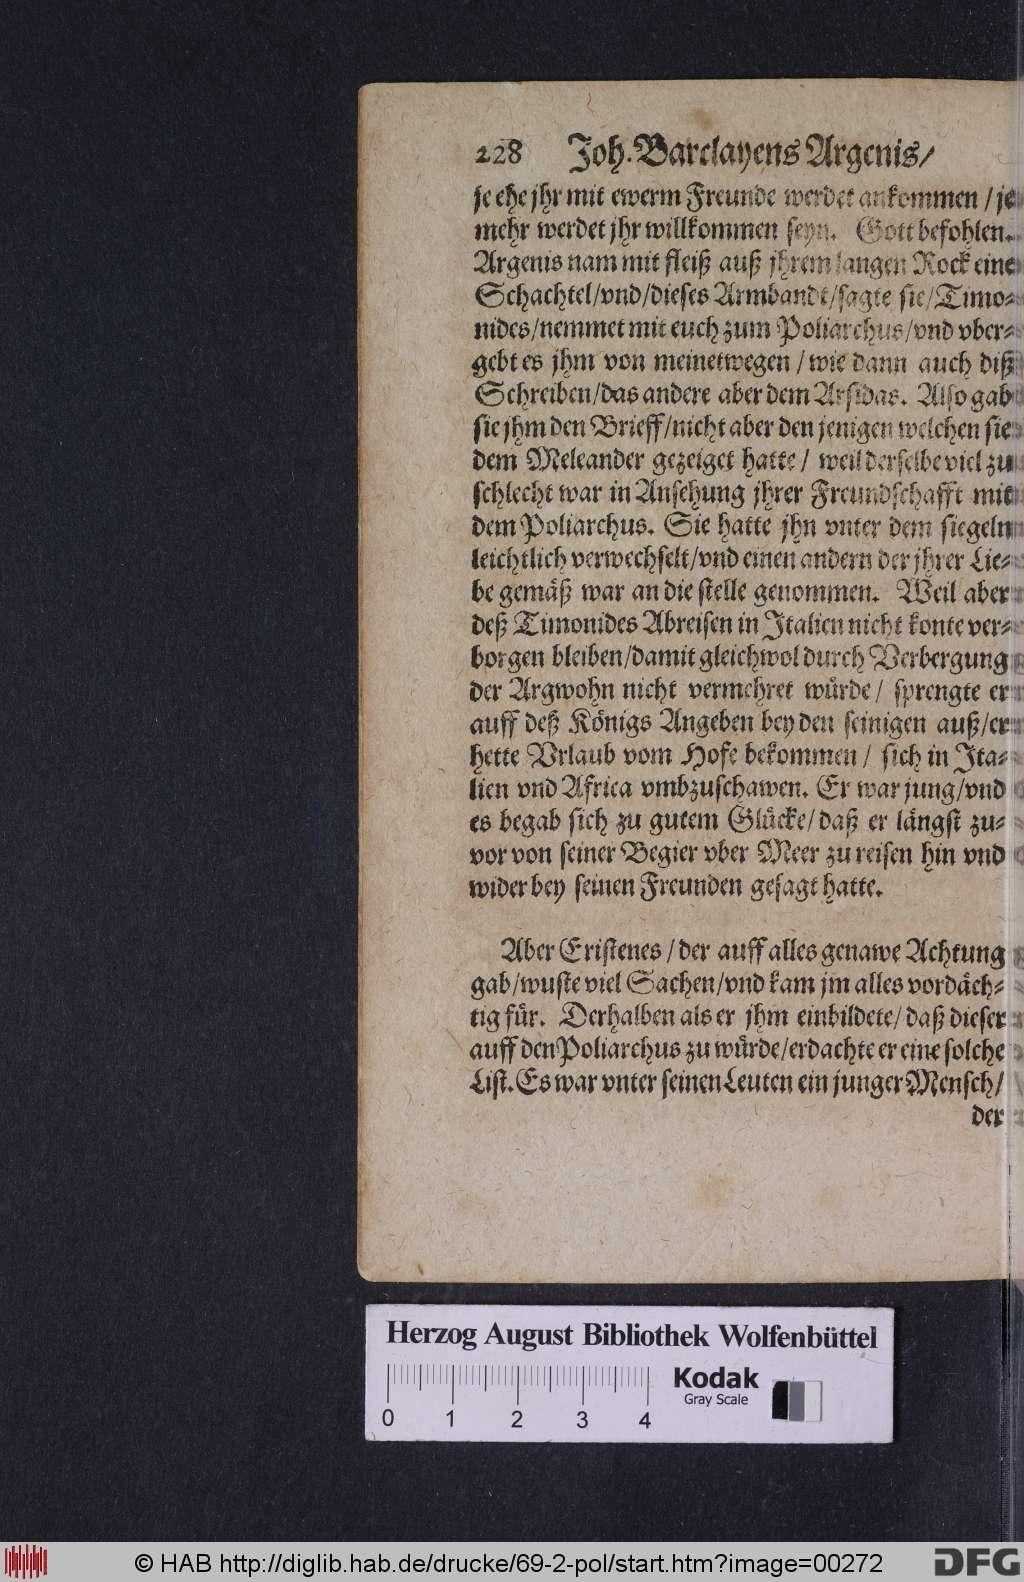 228 Joh. Barclayens Argenis/
je ehe jhr mit ewerm Freunde werdet ankommen / je
mehr werdet jhr willkommen seyn. Gott befohlen.
Argenis nam mit fleiß auß jhrem langen Rock eine
Schachtel/vnd/dieses Armbandt/sagte sie/Timo-
nides/nemmet mit euch zum Poliarchus/vnd vber-
gebt es jhm von meinetwegen / wie dann auch diß
Schreiben/das andere aber dem Arsidas. Also gab
sie jhm den Brieff/nicht aber den jenigen welchen sie
dem Meleander gezeiget hatte / weil derselbe viel zu
schlecht war in Ansehung jhrer Freundschafft mit
dem Poliarchus. Sie hatte jhn vnter dem siegeln
leichtlich verwechselt/vnd einen andern der jhrer Lie-
be gemäß war an die stelle genommen. Weil aber
deß Timonides Abreisen in Italien nicht konte ver-
borgen bleiben/damit gleichwol durch Verbergung
der Argwohn nicht vermehret würde / sprengte er
auff deß Königs Angeben bey den seinigen auß/er
hette Vrlaub vom Hofe bekommen / sich in Ita-
lien vnd Africa vmbzuschawen. Er war jung/vnd
es begab sich zu gutem Glücke/daß er längst zu-
vor von seiner Begier vber Meer zu reisen hin vnd
wider bey seinen Freunden gesagt hatte.
Aber Eristenes / der auff alles genawe Achtung
gab/wuste viel Sachen/vnd kam jm alles vordäch-
tig für. Derhalben als er jhm einbildete/daß dieser
auff den Poliarchus zu würde/erdachte er eine solche
List. Es war vnter seinen Leuten ein junger Mensch/
der
Herzog August Bibliothek Wolfenbüttel
Kodak
Gray Scale
0 1 2 3 4
© HAB http://diglib.hab.de/drucke/69-2-pol/start.htm?image=00272
DFG